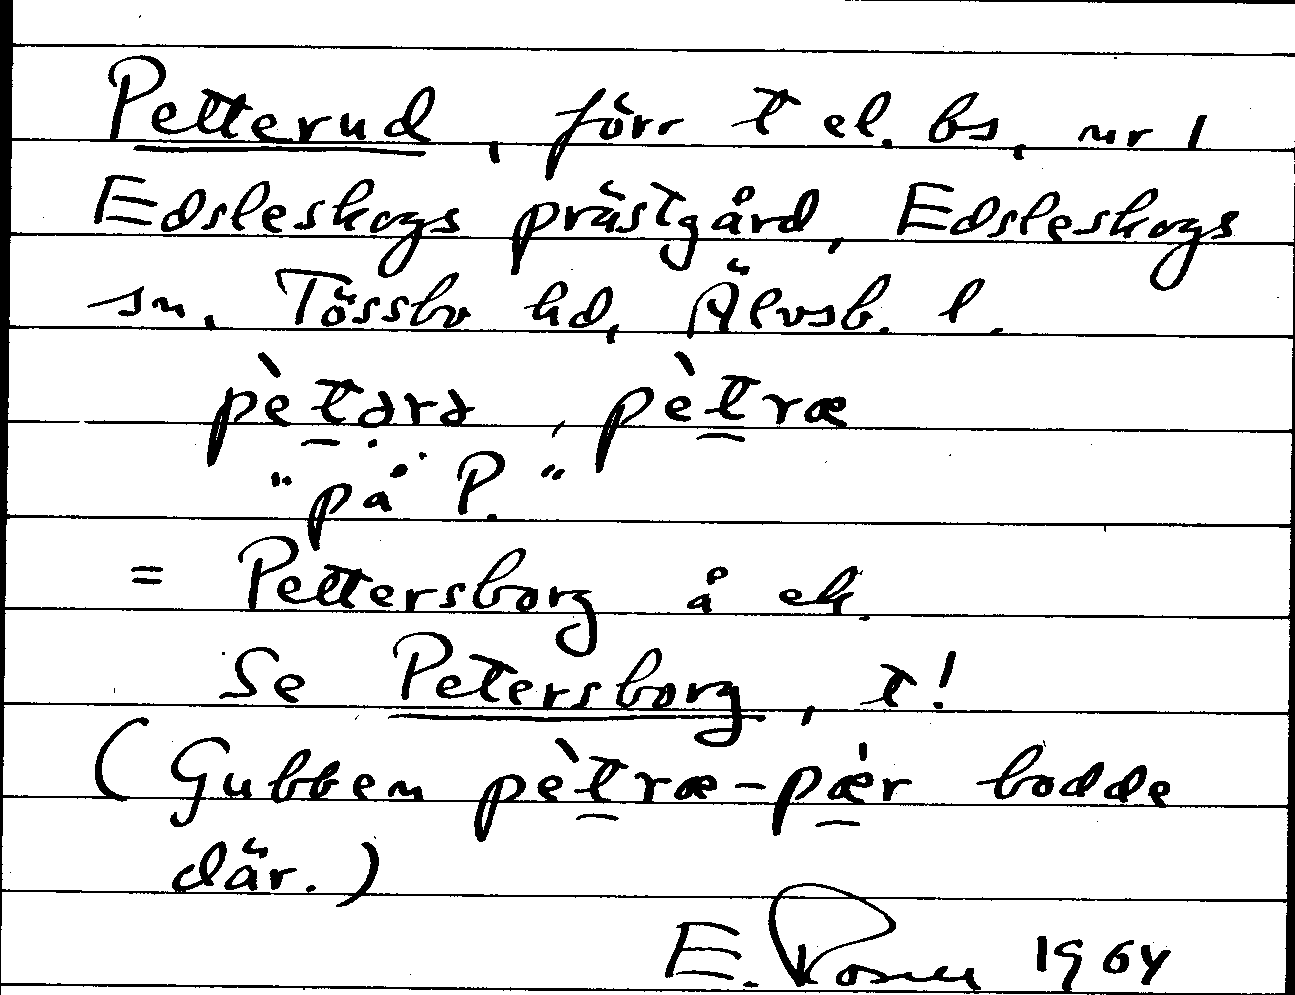 Petterud, förr t el. bs, nr 1
Edsleskogs prästgård, Edsleskogs
sn. Tössbo hd, Älvsb. l.
pètərə, pètræ
"på P."
= Pettersborg å ek.
Se Petersborg, t!
(Gubben pètræ-pǽr bodde
där.)
E. Rosell 1964